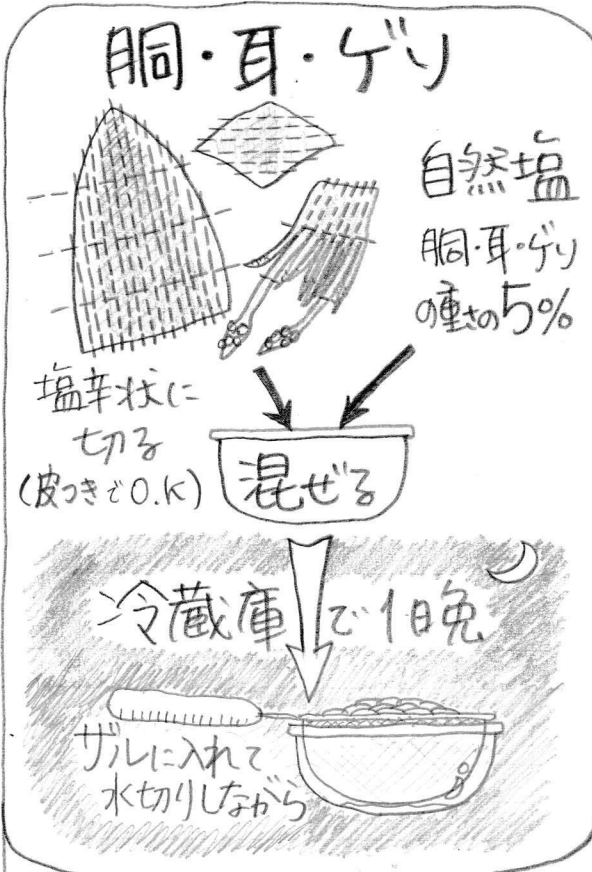 胴・耳・ゲソ
自然塩
胴・耳・ゲソ
の重さの5%
塩辛状に
切る
(皮つきでO.K)
混ぜる
冷蔵庫で1日晩
ザルに入れて
水切りしながら